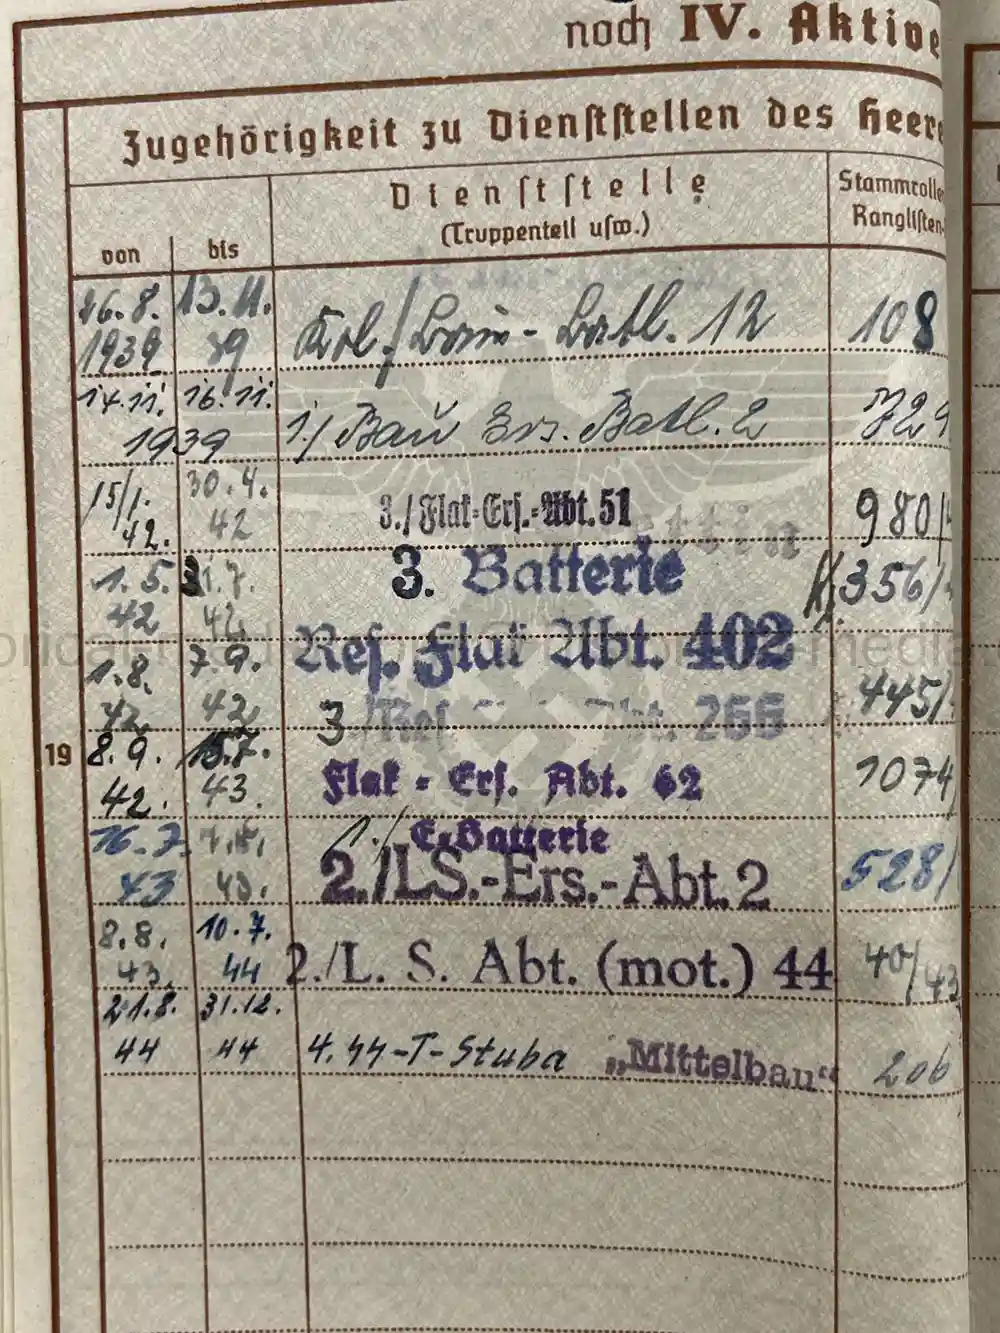 noch IV. Aktive
Zugehörigkeit zu Dienststellen des Heere
von bis
Dienststelle
(Truppenteil usw.)
Stammrolle
Ranglisten-
26.8. 13.11.
1939 39 Kol./Bau-Batl. 12 108
14.11. 16.11.
1939 1./Bau Ers. Batl. 2 729
15/1. 30.4.
42. 42 3./Flak-Ers.-Abt. 51 980/
1.5. 31.7. 3. Batterie 356/
42 42 Res. Flak Abt. 402
1.8. 7.9.
42 42 3/Res 266 445/
19
8.9. 15.7. Flak-Ers. Abt. 62 1074
42. 43. 1./E.Batterie
16.7. 43 2./LS.-Ers.-Abt. 2 528/
8.8. 10.7.
43. 44 2./L. S. Abt. (mot.) 44 40/43
21.8. 31.12.
44 44 4. SS-T-Stuba „Mittelbau“ 206